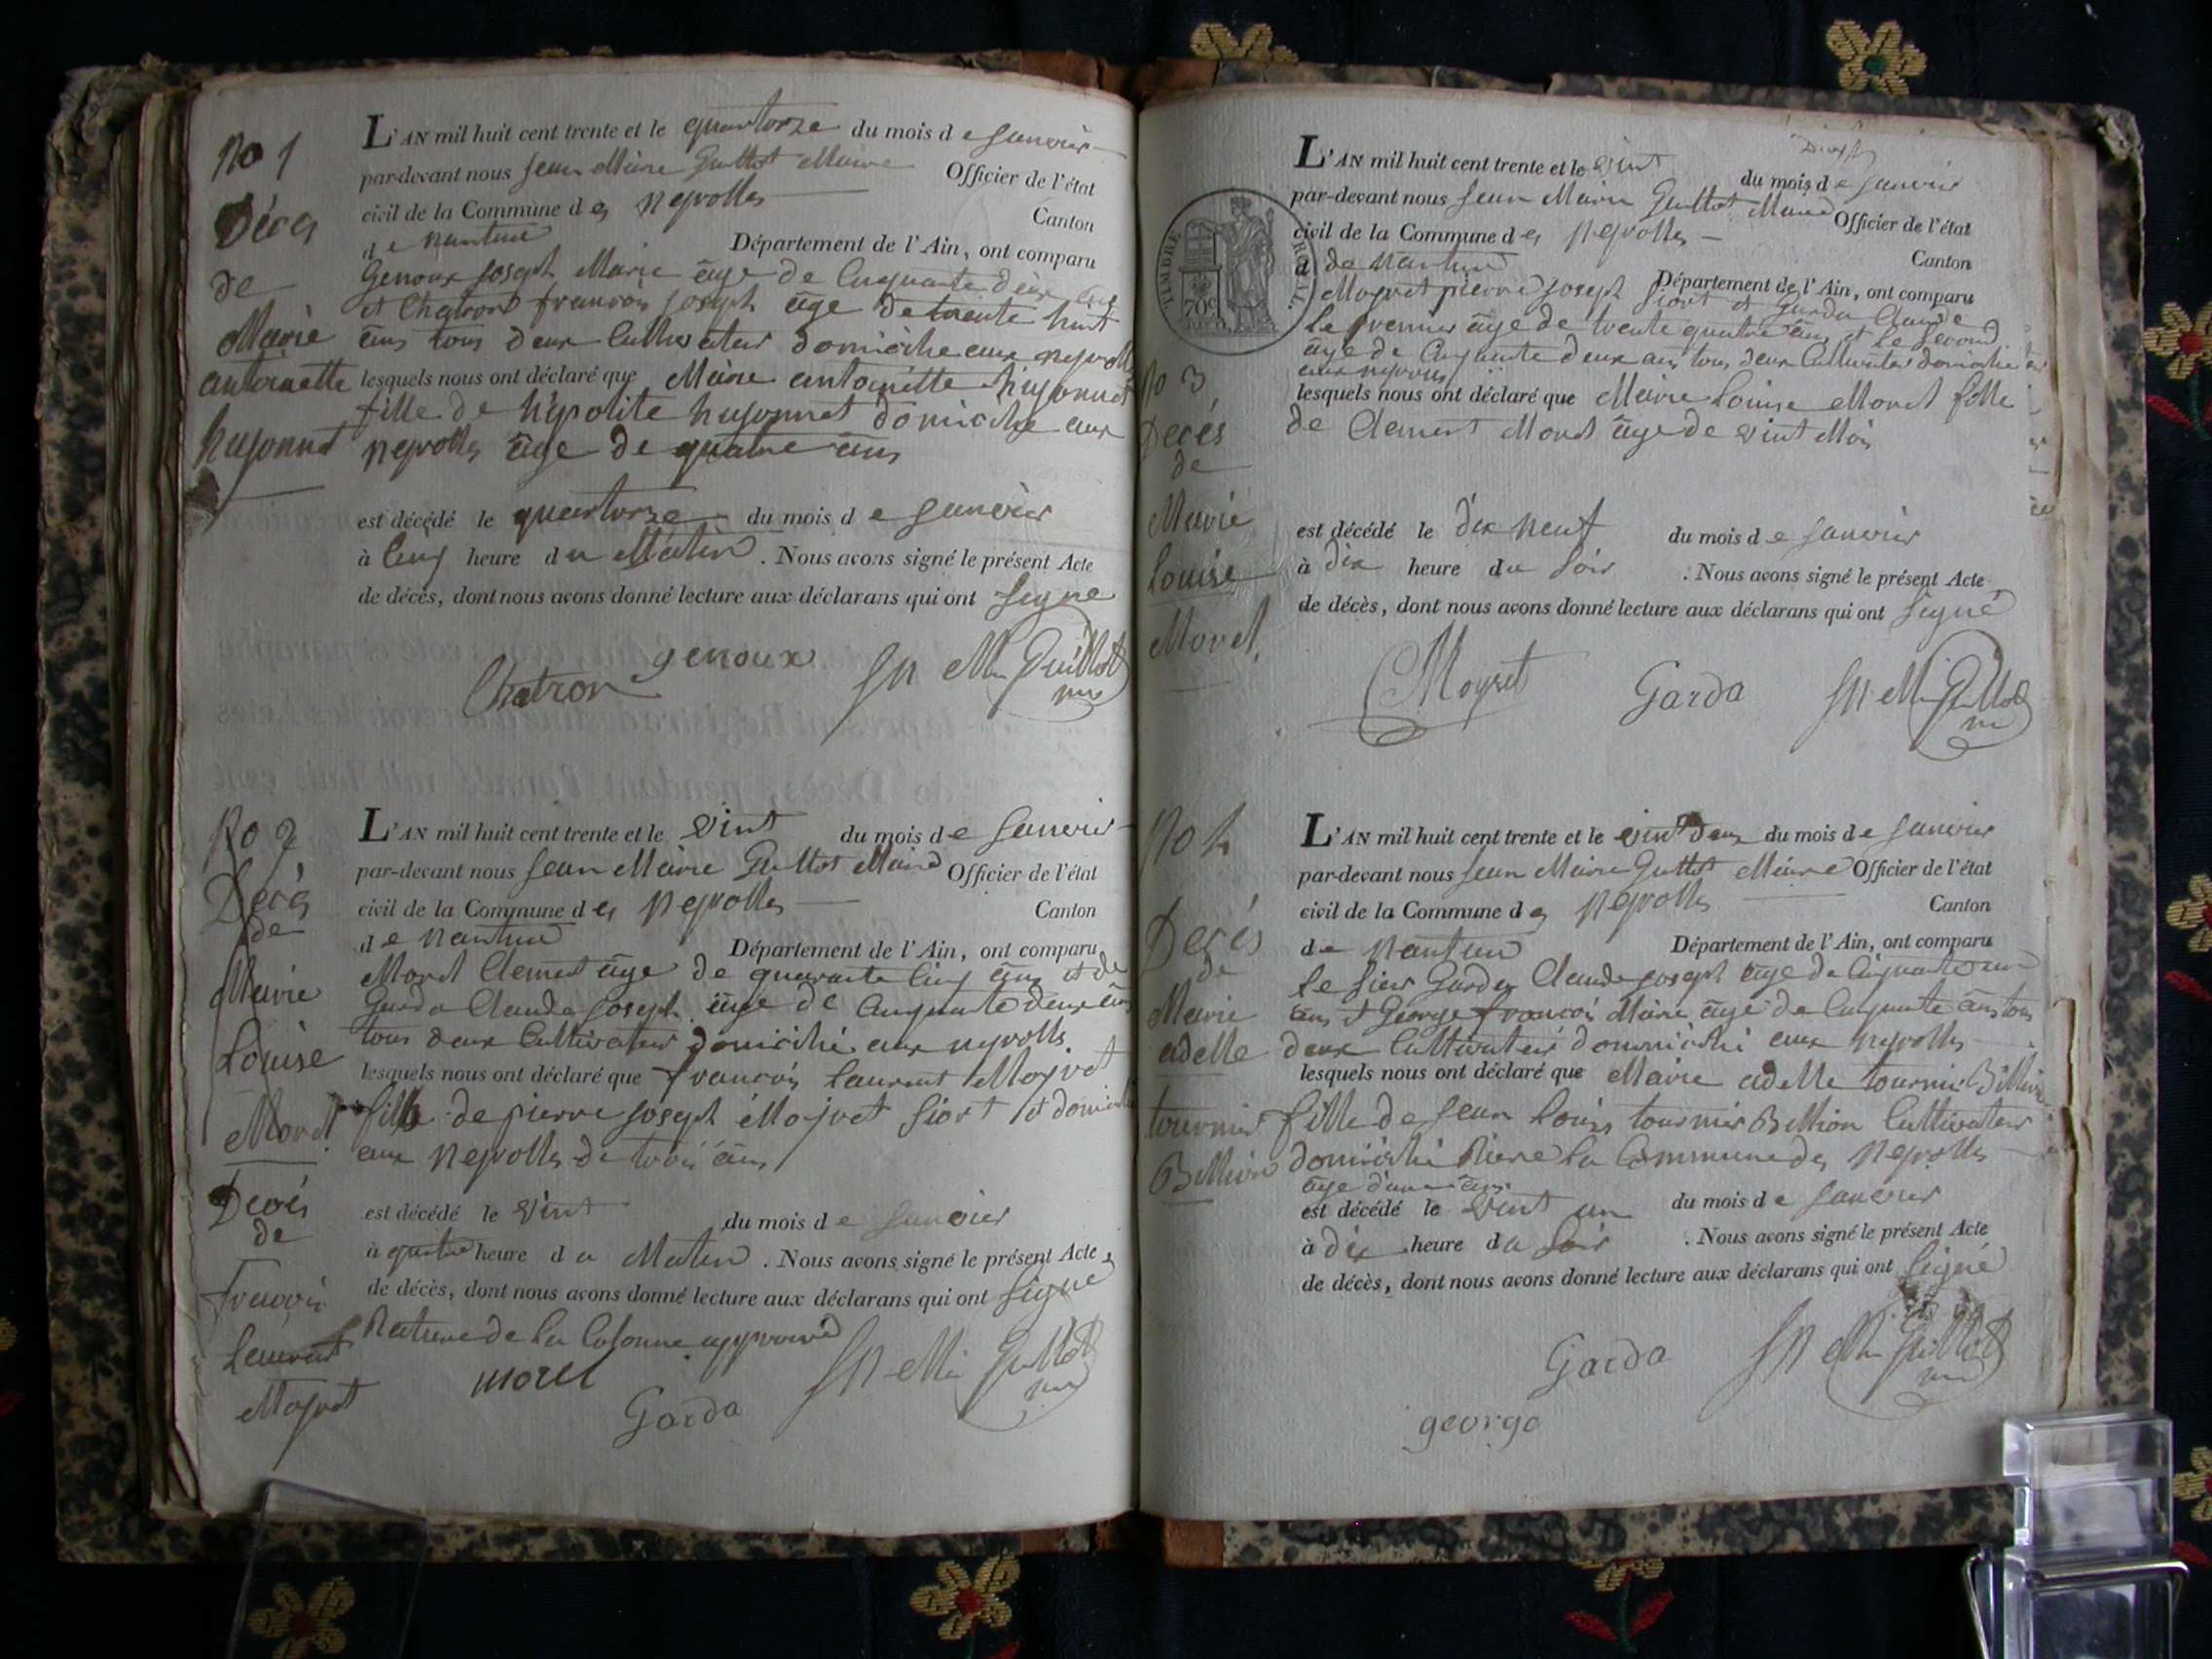 No 1
Décès
de
Marie
antoinette
hugonnet
L'AN mil huit cent trente et le quatorze du mois de janvier
par-devant nous jean Marie Guillot Maire Officier de l'état
civil de la Commune des neyrolles Canton
de nantua Département de l'Ain, ont comparu
Genoux joseph Marie âge de Cinquante deux ans
et Chatron francois joseph âge de trente huit
âns tous deux Cultivateur domicilie aux neyrolles
lesquels nous ont déclaré que Marie antoinette hugonnet
fille de hipolite hugonnet domicilie aux
neyrolles âge de quatre âns
est décédé le quatorze du mois de janvier
à Cinq heure du Matin. Nous avons signé le présent Acte
de décès, dont nous avons donné lecture aux déclarans qui ont signe
Chatron genoux Jn Mie Guillot
No 2
Décès
de
Marie
Louise
Morel
Décés
de
francois
Laurent
Moyret
L'AN mil huit cent trente et le vint du mois de janvier
par-devant nous jean Marie Guillot Maire Officier de l'état
civil de la Commune des Neyrolles Canton
de nantua Département de l'Ain, ont comparu
Morel Clement âge de quarante Cinq âns et de
Garda Claude joseph âge de Cinquante deux âns
tous deux Cultivateur domicilié aux neyrolles
lesquels nous ont déclaré que francois Laurent Moyret
fills de pierre joseph Moyret siort et domicilié
aux Neyrolles de trois âns
est décédé le vint du mois de janvier
à quatre heure du Matin. Nous avons signé le présent Acte
de décès, dont nous avons donné lecture aux déclarans qui ont signé
Rature de la Colonne approuvé
morel Garda Jn Mie Guillot
TIMBRE ROYAL.
70c
No 3
Décés
de
Marie
Louise
Morel
L'AN mil huit cent trente et le vint du mois de janvier
par-devant nous jean Marie Guillot Maire Officier de l'état
civil de la Commune des Neyrolles Canton
d de nantua Département de l'Ain, ont comparu
Moyret pierre joseph siort et Garda Claude
le premier âge de trente quatre âns et le second
âge de Cinquante deux ans tous deux Cultivateur domicilie
aux neyrolles
lesquels nous ont déclaré que Marie Louise Morel fille
de Clement Morel âge de vint Mois
est décédé le dix neuf du mois de janvier
à dix heure du soir. Nous avons signé le présent Acte
de décès, dont nous avons donné lecture aux déclarans qui ont signé
Moyret Garda Jn Mie Guillot
No 4
Decés
de
Marie
adelle
tournier
Billion
L'AN mil huit cent trente et le vint deux du mois de janvier
par-devant nous jean Marie Guillot Maire Officier de l'état
civil de la Commune des Neyrolles Canton
de Nantua Département de l'Ain, ont comparu
le sieur Garda Claude joseph âge de Cinquante deux
âns et George francois Marie âgé de Cinquante âns tous
deux Cultivateur domicilié aux neyrolles
lesquels nous ont déclaré que Marie adelle tournier Billion
fille de jean Louis tournier Billion Cultivateur
domicilié Riere la Commune des Neyrolles
âge d'une âns
est décédé le vint un du mois de janvier
à dix heure du soir. Nous avons signé le présent Acte
de décès, dont nous avons donné lecture aux déclarans qui ont signé
Garda Jn Mie Guillot
george